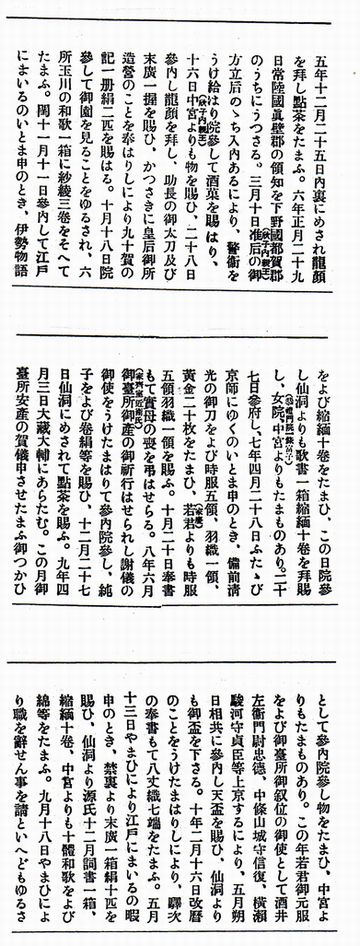 五年十二月二十五日内裏にめされ龍顔
を拜し點茶をたまふ。六年正月二十九
日常陸國眞壁郡の領知を下野國都賀郡
のうちにうつさる。三月十日准后の御
方立后のゝち入内あるにより、警衞を
うけ給はり院參して酒菓を賜はり、
十六日中宮よりも物を賜ひ、二十八日
參内し龍顔を拜し、助長の御太刀及び
末廣一握を賜ひ、かつさきに皇后御所
造營のことを奉はりしにより九十賀の
記一册絹二匹を賜はる。十月十八日院
參して御園を見ることをゆるされ、六
所玉川の和歌一箱に紗綾三卷をそへて
たまふ。閏十一月十一日參内して江戸
にまいるのいとま申のとき、伊勢物語
をよび縮緬十卷をたまひ、この日院參
し仙洞よりも歌書一箱縮緬十卷を拜賜
し、女院、中宮よりもたまものあり。二十
七日參府し、七年四月二十八日ふたゝび
京師にゆくのいとま申のとき、備前清
光の御刀をよび時服五領、羽織一領、
黄金二十枚をたまひ、若君よりも時服
五領羽織一領を賜ふ。十月二十日奉書
もて實母の喪を弔はせらる。八年六月
御臺所御產の御祈行はせられし謝儀の
御使をうけたまはりて參内院參し、純
子をよび卷絹等を賜ひ、十二月二十七
日仙洞にめされて點茶を賜ふ。九年四
月三日大藏大輔にあらたむ。この月御
臺所安產の賀儀申させたまふ御つかひ
として參内院參し物をたまひ、中宮よ
りもたまものあり。この年若君御元服
をよび御臺所御叙位の御使として酒井
左衞門尉忠德、中條山城守信復、横瀨
駿河守貞臣等上京するにより、五月朔
日相共に參内し天盃を賜ひ、仙洞より
も御盃を下さる。十年二月十六日改曆
のことをうけたまはりしにより、驛次
の奉書もて八丈織七端をたまふ。五月
十三日やまひにより江戸にまいるの暇
申のとき、禁裏より末廣一箱絹十匹を
賜ひ、仙洞より源氏十二月詞書一箱、
縮緬十卷、中宮よりも十體和歌をよび
綿等をたまふ。九月十八日やまひによ
り職を辭せん事を請といへどもゆるさ